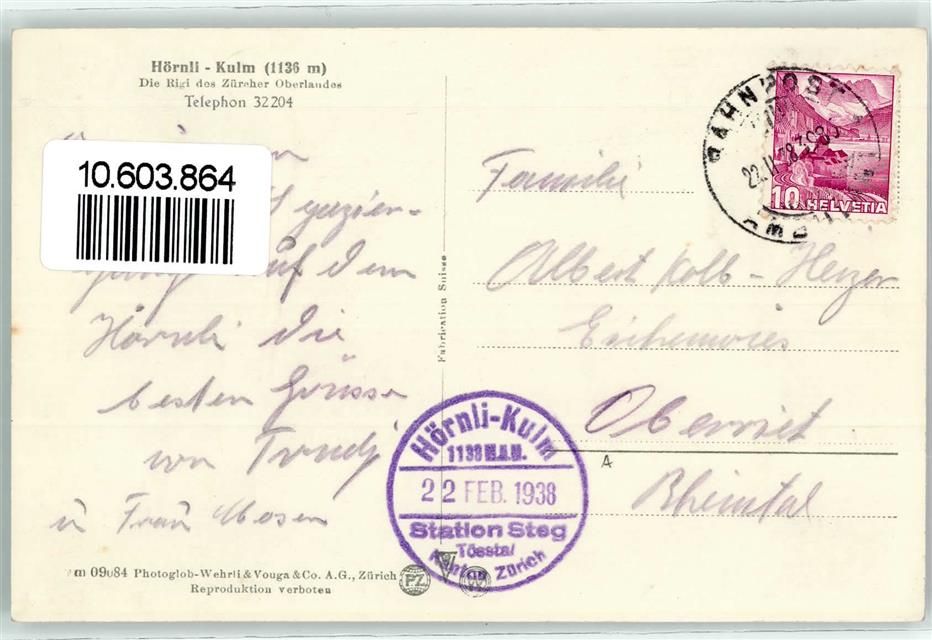 Hörnli - Kulm (1136 m)
Die Rigi des Zürcher Oberlandes
Telephon 32204
10.603.864
auf dem
Hörnli die
besten Grüsse
von Trudi
u Frau Moser
Fabrication Suisse
BAHNPOST
22.II.38
10 HELVETIA
Familie
Albert Kolb - Herzer
Eichenwies
Oberriet
Rheintal
A
Hörnli-Kulm
1138 M.ü.M.
22 FEB. 1938
Station Steg
Tösstal
Kanton Zürich
09084 Photoglob-Wehrli & Vouga & Co. A.G., Zürich
Reproduktion verboten
PZ